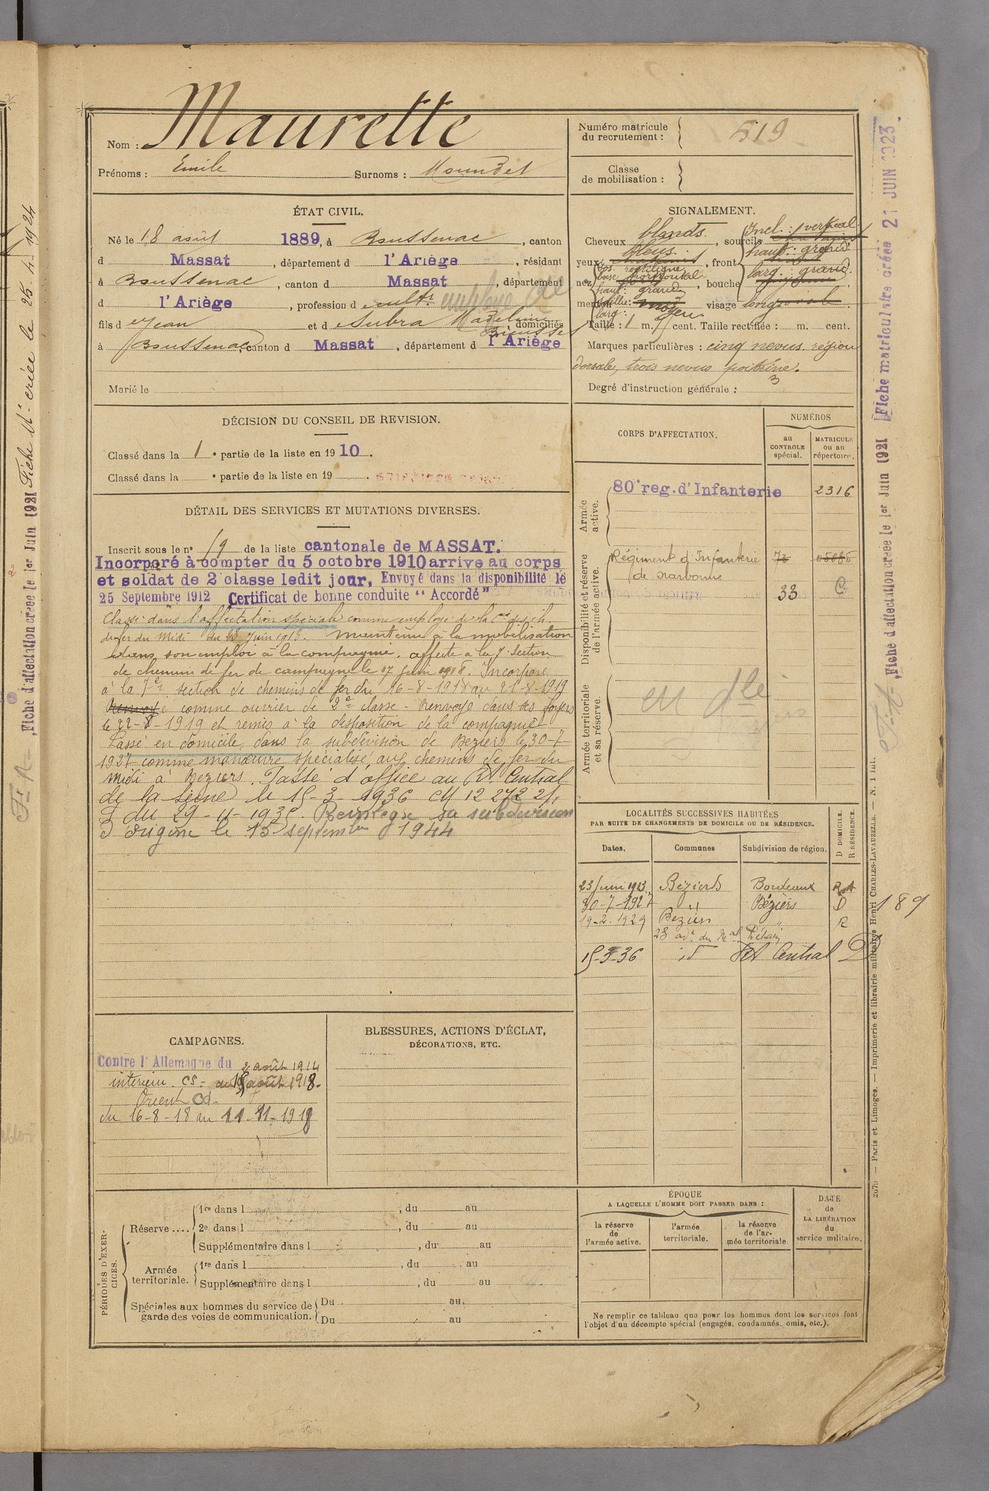 Nom : Maurette
Prénoms : Emile Surnoms : Moundet
Numéro matricule du recrutement : 519
Classe de mobilisation :
ÉTAT CIVIL.
Né le 18 août 1889, à Boussenac, canton
d Massat, département d l'Ariège, résidant
à Boussenac, canton d Massat, département
d l'Ariège, profession de cultr employé
fils d Jean et d Aubra Madeleine, domiciliés
à Boussenac, canton d Massat, département d l'Ariège
Marié le
SIGNALEMENT.
Cheveux blonds, sourcils
yeux bleus, front
nez, bouche
menton, visage long
Taille : 1 m. cent. Taille rectifiée : m. cent.
Marques particulières : cinq nevus région
dorsale, trois nevus poitrine.
Degré d'instruction générale : 3
DÉCISION DU CONSEIL DE REVISION.
Classé dans la 1e partie de la liste en 1910.
Classé dans la e partie de la liste en 19
DÉTAIL DES SERVICES ET MUTATIONS DIVERSES.
Inscrit sous le n° 19 de la liste cantonale de MASSAT.
Incorporé à compter du 5 octobre 1910 arrive au corps
et soldat de 2e classe ledit jour, Envoyé dans la disponibilité le
25 Septembre 1912 Certificat de bonne conduite "Accordé"
Classé dans l'affectation spéciale comme employé de la Cie des ch.
de fer du Midi du Juin 1913. Maintenu à la mobilisation
dans son emploi à la compagnie. affecté à la 7e section
de chemins de fer de campagne le 17 juin 1918. Incorporé
à la 7e section de chemins de fer du 16-8-1918 au 21-8-1919
comme ouvrier de 2e classe. Renvoyé dans ses foyers
le 22-8-1919 et remis à la disposition de la compagnie
Passé en domicile dans la subdivision de Béziers le 30-7
1927 comme manœuvre spécialisé aux chemins de fer du
midi à Béziers. Passé d'office au Rt Central
de la Seine le 15-3-1936 CM 12 272 2/1
du 29-11-1935. Réintègre sa subdivision
d'origine le 15 septembre 1944
CORPS D'AFFECTATION.
NUMÉROS
au CONTROLE spécial.
MATRICULE ou au répertoire.
Armée active.
80e reg. d'Infanterie 2316
Disponibilité et réserve de l'armée active.
Régiment d'Infanterie
de Narbonne
33 C
Armée territoriale et sa réserve.
LOCALITÉS SUCCESSIVES HABITÉES
PAR SUITE DE CHANGEMENTS DE DOMICILE OU DE RÉSIDENCE.
Dates. Communes Subdivision de région. D DOMICILE. R RÉSIDENCE.
23 Juin 1913 Béziers Bordeaux
30-7-1927 " Béziers D
19-2-1929 Beziers " R
15-3-36 id Rt Central D
189
CAMPAGNES.
Contre l'Allemagne du 2 août 1914
intérieur CS = au 15 août 1918.
Orient CD
du 16-8-18 au 11-11-1918
BLESSURES, ACTIONS D'ÉCLAT,
DÉCORATIONS, ETC.
PÉRIODES D'EXERCICES.
Réserve ....
1re dans l , du au
2e dans l , du au
Supplémentaire dans l , du au
Armée territoriale.
1re dans l , du au
Supplémentaire dans l , du au
Spéciales aux hommes du service de garde des voies de communication.
Du au
Du au
ÉPOQUE
A LAQUELLE L'HOMME DOIT PASSER DANS :
la réserve de l'armée active.
l'armée territoriale.
la réserve de l'armée territoriale
DATE de LA LIBÉRATION du service militaire.
Ne remplir ce tableau que pour les hommes dont les services font
l'objet d'un décompte spécial (engagés, condamnés, omis, etc.).
Fiche d'affectation créée le 1er Juin 1921
Fiche matriculaire créée 21 JUIN 1923
Paris et Limoges. — Imprimerie et librairie militaires Henri CHARLES-LAVAUZELLE. — N. 1 bit.
Fiche d'affectation créée le 1er Juin 1921 Fiche Mle créée le 26.4.1924